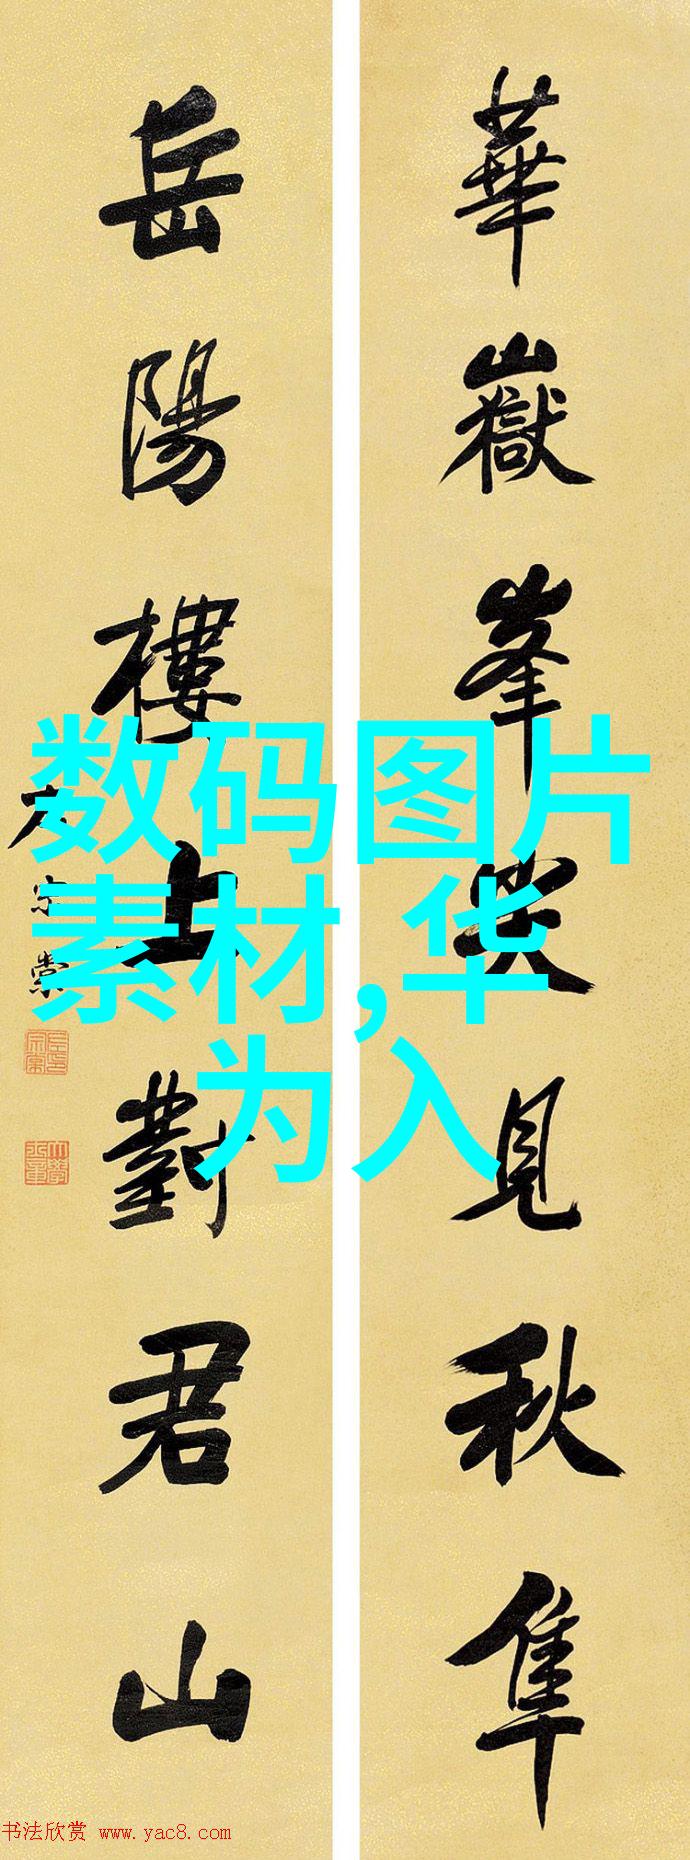 華嶽峯尖見秋隼
岳陽樓上對君山
左宗棠
数码图片
素材,华
为入
书法欣赏 www.yac8.com